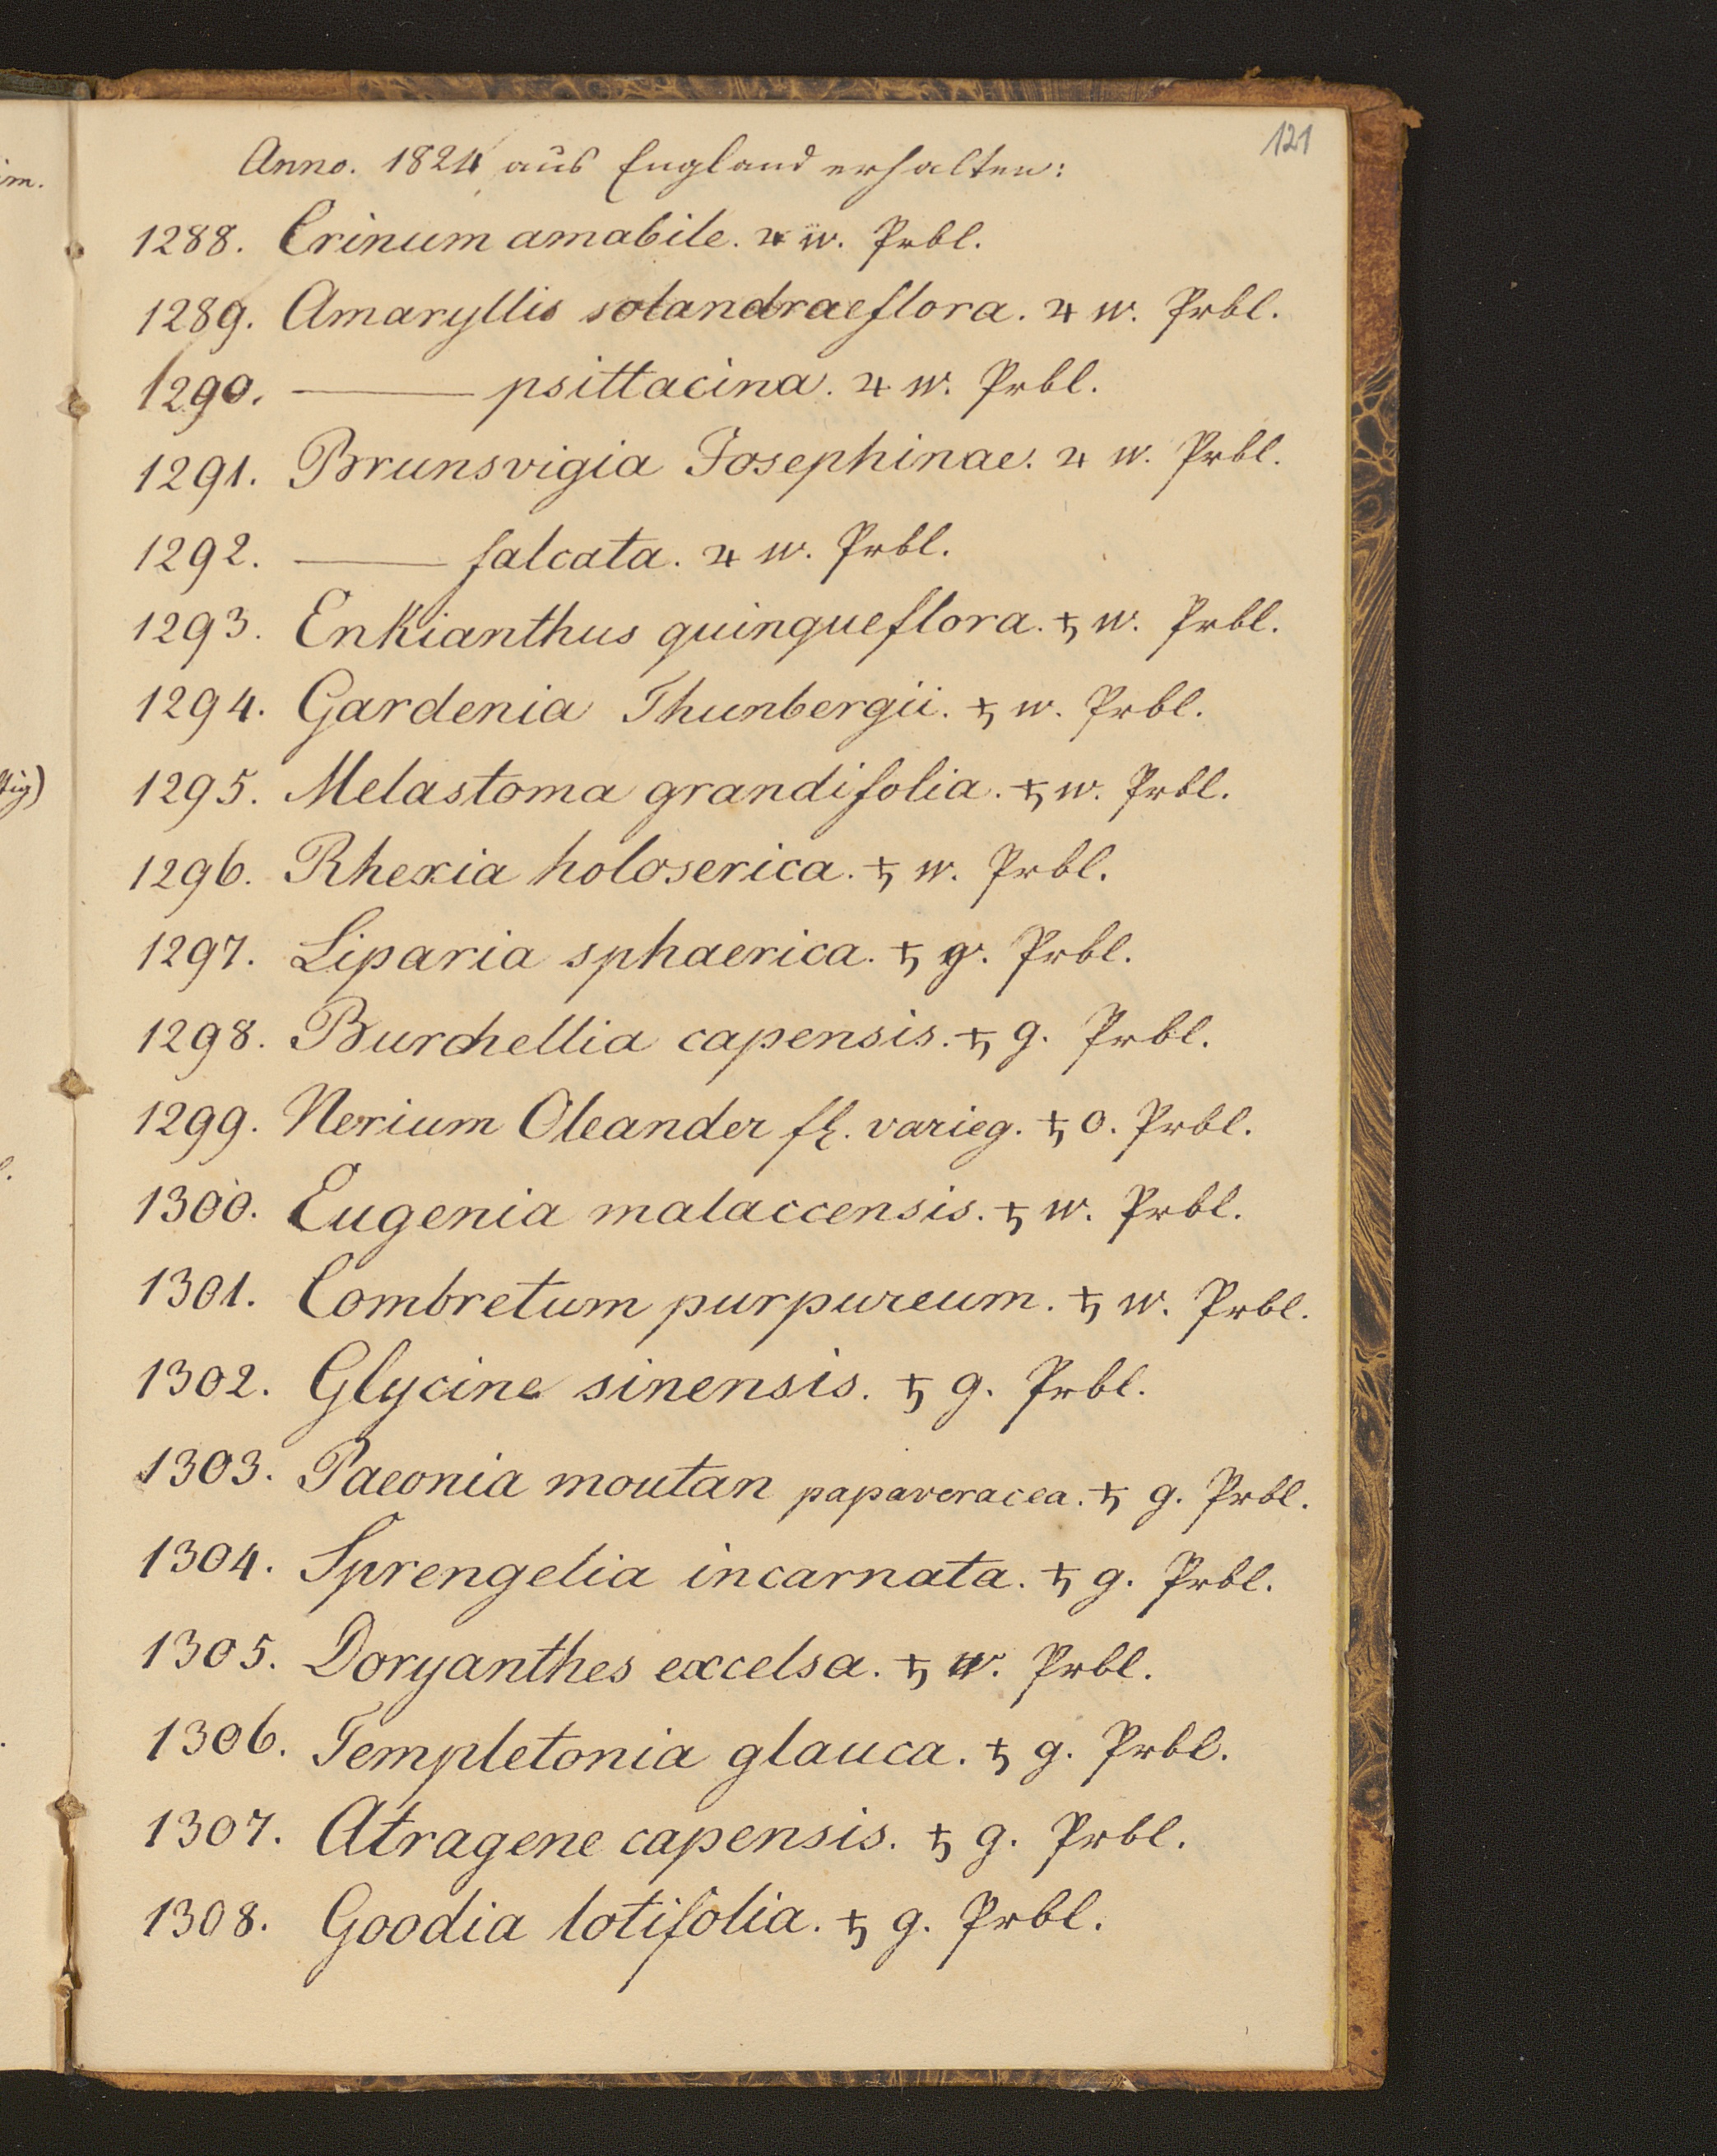 121
Anno. 1824 aus England erhalten:
1288. Crinum amabile. ♃ w. Prbl.
1289. Amaryllis solandraeflora. ♃ w. Prbl.
1290. ——— psittacina. ♃ w. Prbl.
1291. Brunsvigia Josephinae. ♃ w. Prbl.
1292. ——— falcata. ♃ w. Prbl.
1293. Enkianthus quinqueflora. ♄ w. Prbl.
1294. Gardenia Thunbergii. ♄ w. Prbl.
1295. Melastoma grandifolia. ♄ w. Prbl.
1296. Rhexia holoserica. ♄ w. Prbl.
1297. Liparia sphaerica. ♄ g. Prbl.
1298. Burchellia capensis. ♄ g. Prbl.
1299. Nerium Oleander fl. varieg. ♄ o. Prbl.
1300. Eugenia malaccensis. ♄ w. Prbl.
1301. Combretum purpureum. ♄ w. Prbl.
1302. Glycine sinensis. ♄ g. Prbl.
1303. Paeonia moutan papaveracea. ♄ g. Prbl.
1304. Sprengelia incarnata. ♄ g. Prbl.
1305. Doryanthes excelsa. ♄ w. Prbl.
1306. Templetonia glauca. ♄ g. Prbl.
1307. Atragene capensis. ♄ g. Prbl.
1308. Goodia lotifolia. ♄ g. Prbl.